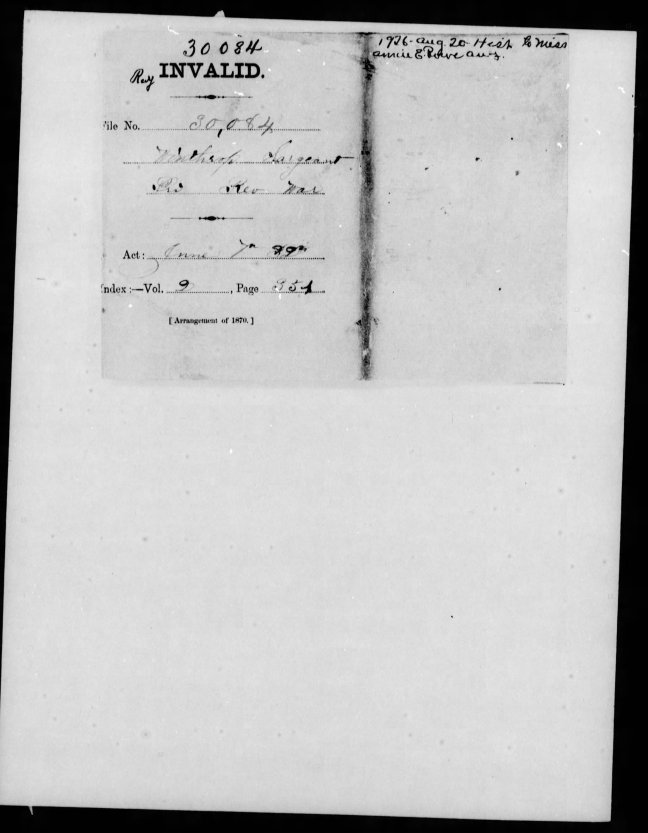 30084
Rej INVALID.
File No. 30,084
Winthrop Sargeant
Rev War
Act: June 7th
Index:—Vol. 9, Page 351
[Arrangement of 1870.]
1926-Aug 20-Hist to Miss
Annie E. Powe